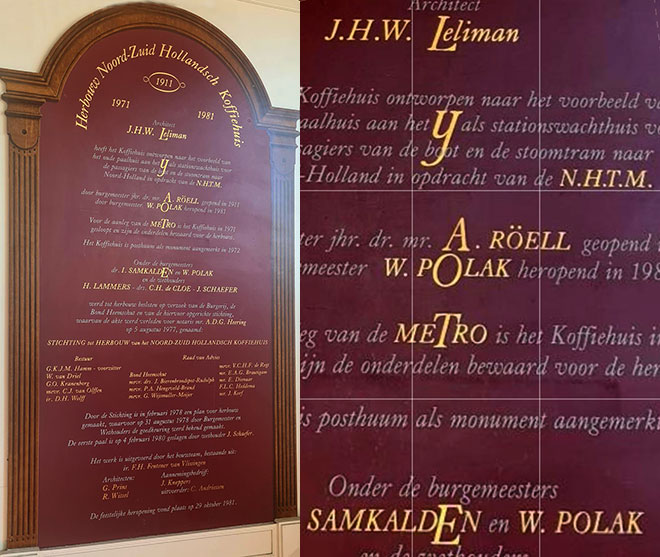 Herbouw Noord-Zuid Hollandsch Koffiehuis
1911
1971 1981
Architect
J.H.W. Leliman
heeft het Koffiehuis ontworpen naar het voorbeeld van
het oude paalhuis aan het Y als stationswachthuis voor
de passagiers van de boot en de stoomtram naar
Noord-Holland in opdracht van de N.H.T.M.
door burgemeester jhr. dr. mr. A. RÖELL geopend in 1911
door burgemeester W. POLAK heropend in 1981
Voor de aanleg van de METRO is het Koffiehuis in 1971
gesloopt en zijn de onderdelen bewaard voor de herbouw.
Het Koffiehuis is posthuum als monument aangemerkt in 1972
Onder de burgemeesters
dr. I. SAMKALDEN en W. POLAK
en de wethouders
H. LAMMERS - drs. C.H. de CLOE - J. SCHAEFER
werd tot herbouw besloten op verzoek van de Burgerij, de
Bond Heemschut en van de hiervoor opgerichte stichting,
waarvan de akte werd verleden voor notaris mr. A.D.G. Heering
op 5 augustus 1977, genaamd:
STICHTING tot HERBOUW van het NOORD-ZUID HOLLANDSCH KOFFIEHUIS
Bestuur Raad van Advies
G.K.J.M. Hamm - voorzitter mevr. V.C.H.F. de Roy
W. van Driel Bond Heemschut mr. E.A.G.
G.O. Kranenborg mevr. drs. J. Bierenbroodspot-Rudolph mr. E.
mevr. C.J. van Olffen mevr. P.A. Hoogveld-Brand F.L.C.
ir. D.H. Wolff mevr. G. Wijsmuller-Meijer mr. J. Keef
Door de Stichting is in februari 1978 een plan voor herbouw
gemaakt, waarvoor op 31 augustus 1978 door Burgemeester en
Wethouders de goedkeuring werd bekend gemaakt.
De eerste paal is op 4 februari 1980 geslagen door wethouder J. Schaefer.
Het werk is uitgevoerd door het bouwteam, bestaande uit:
ir. F.H. Fentener van Vlissingen
Architecten: Aannemingsbedrijf:
G. Prins J. Kneppers
R. Witsel uitvoerder: C. Andriessen
De feestelijke heropening vond plaats op 29 oktober 1981.
Architect
J.H.W. Leliman
Koffiehuis ontworpen naar het voorbeeld v
paalhuis aan het Y als stationswachthuis vo
agiers van de boot en de stoomtram naar
-Holland in opdracht van de N.H.T.M.
ter jhr. dr. mr. A. RÖELL geopend
emeester W. POLAK heropend in 198
eg van de METRO is het Koffiehuis i
ijn de onderdelen bewaard voor de her
is posthuum als monument aangemerk
Onder de burgemeesters
SAMKALDEN en W. POLAK
en de wethouders